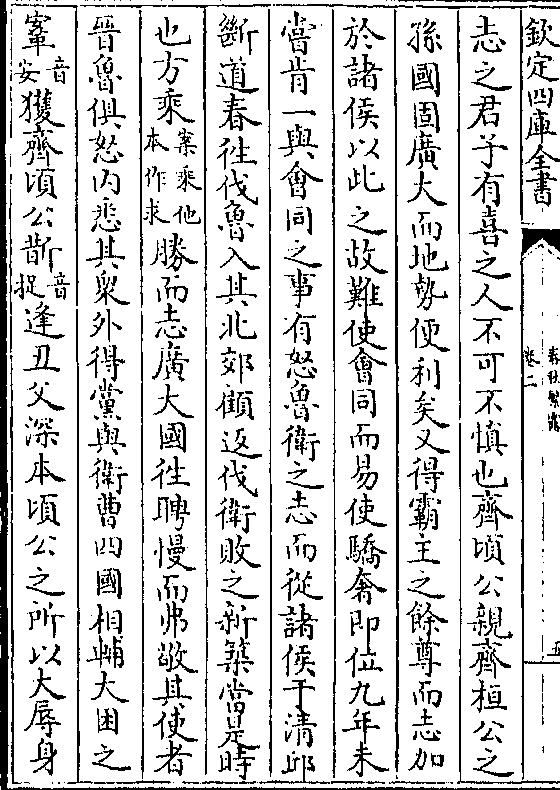 欽定四庫全書
春秋繁露
卷二
五
志之君子有喜之人不可不慎也齊頃公親齊桓公之
孫國固廣大而地勢便利矣又得霸主之餘尊而志加
於諸侯以此之故難使會同而易使驕奢即位九年未
嘗肯一與會同之事有怒魯衛之志而從諸侯于清邱
斷道春往伐魯入其北郊顧返伐衛敗之新築當是時
也方乘案乘他本作求勝而志廣大國往聘慢而弗敬其使者
晉魯俱怒内悉其衆外得黨與衛曹四國相輔大困之
鞌音安獲齊頃公斮音捉逢丑父深本頃公之所以大辱身